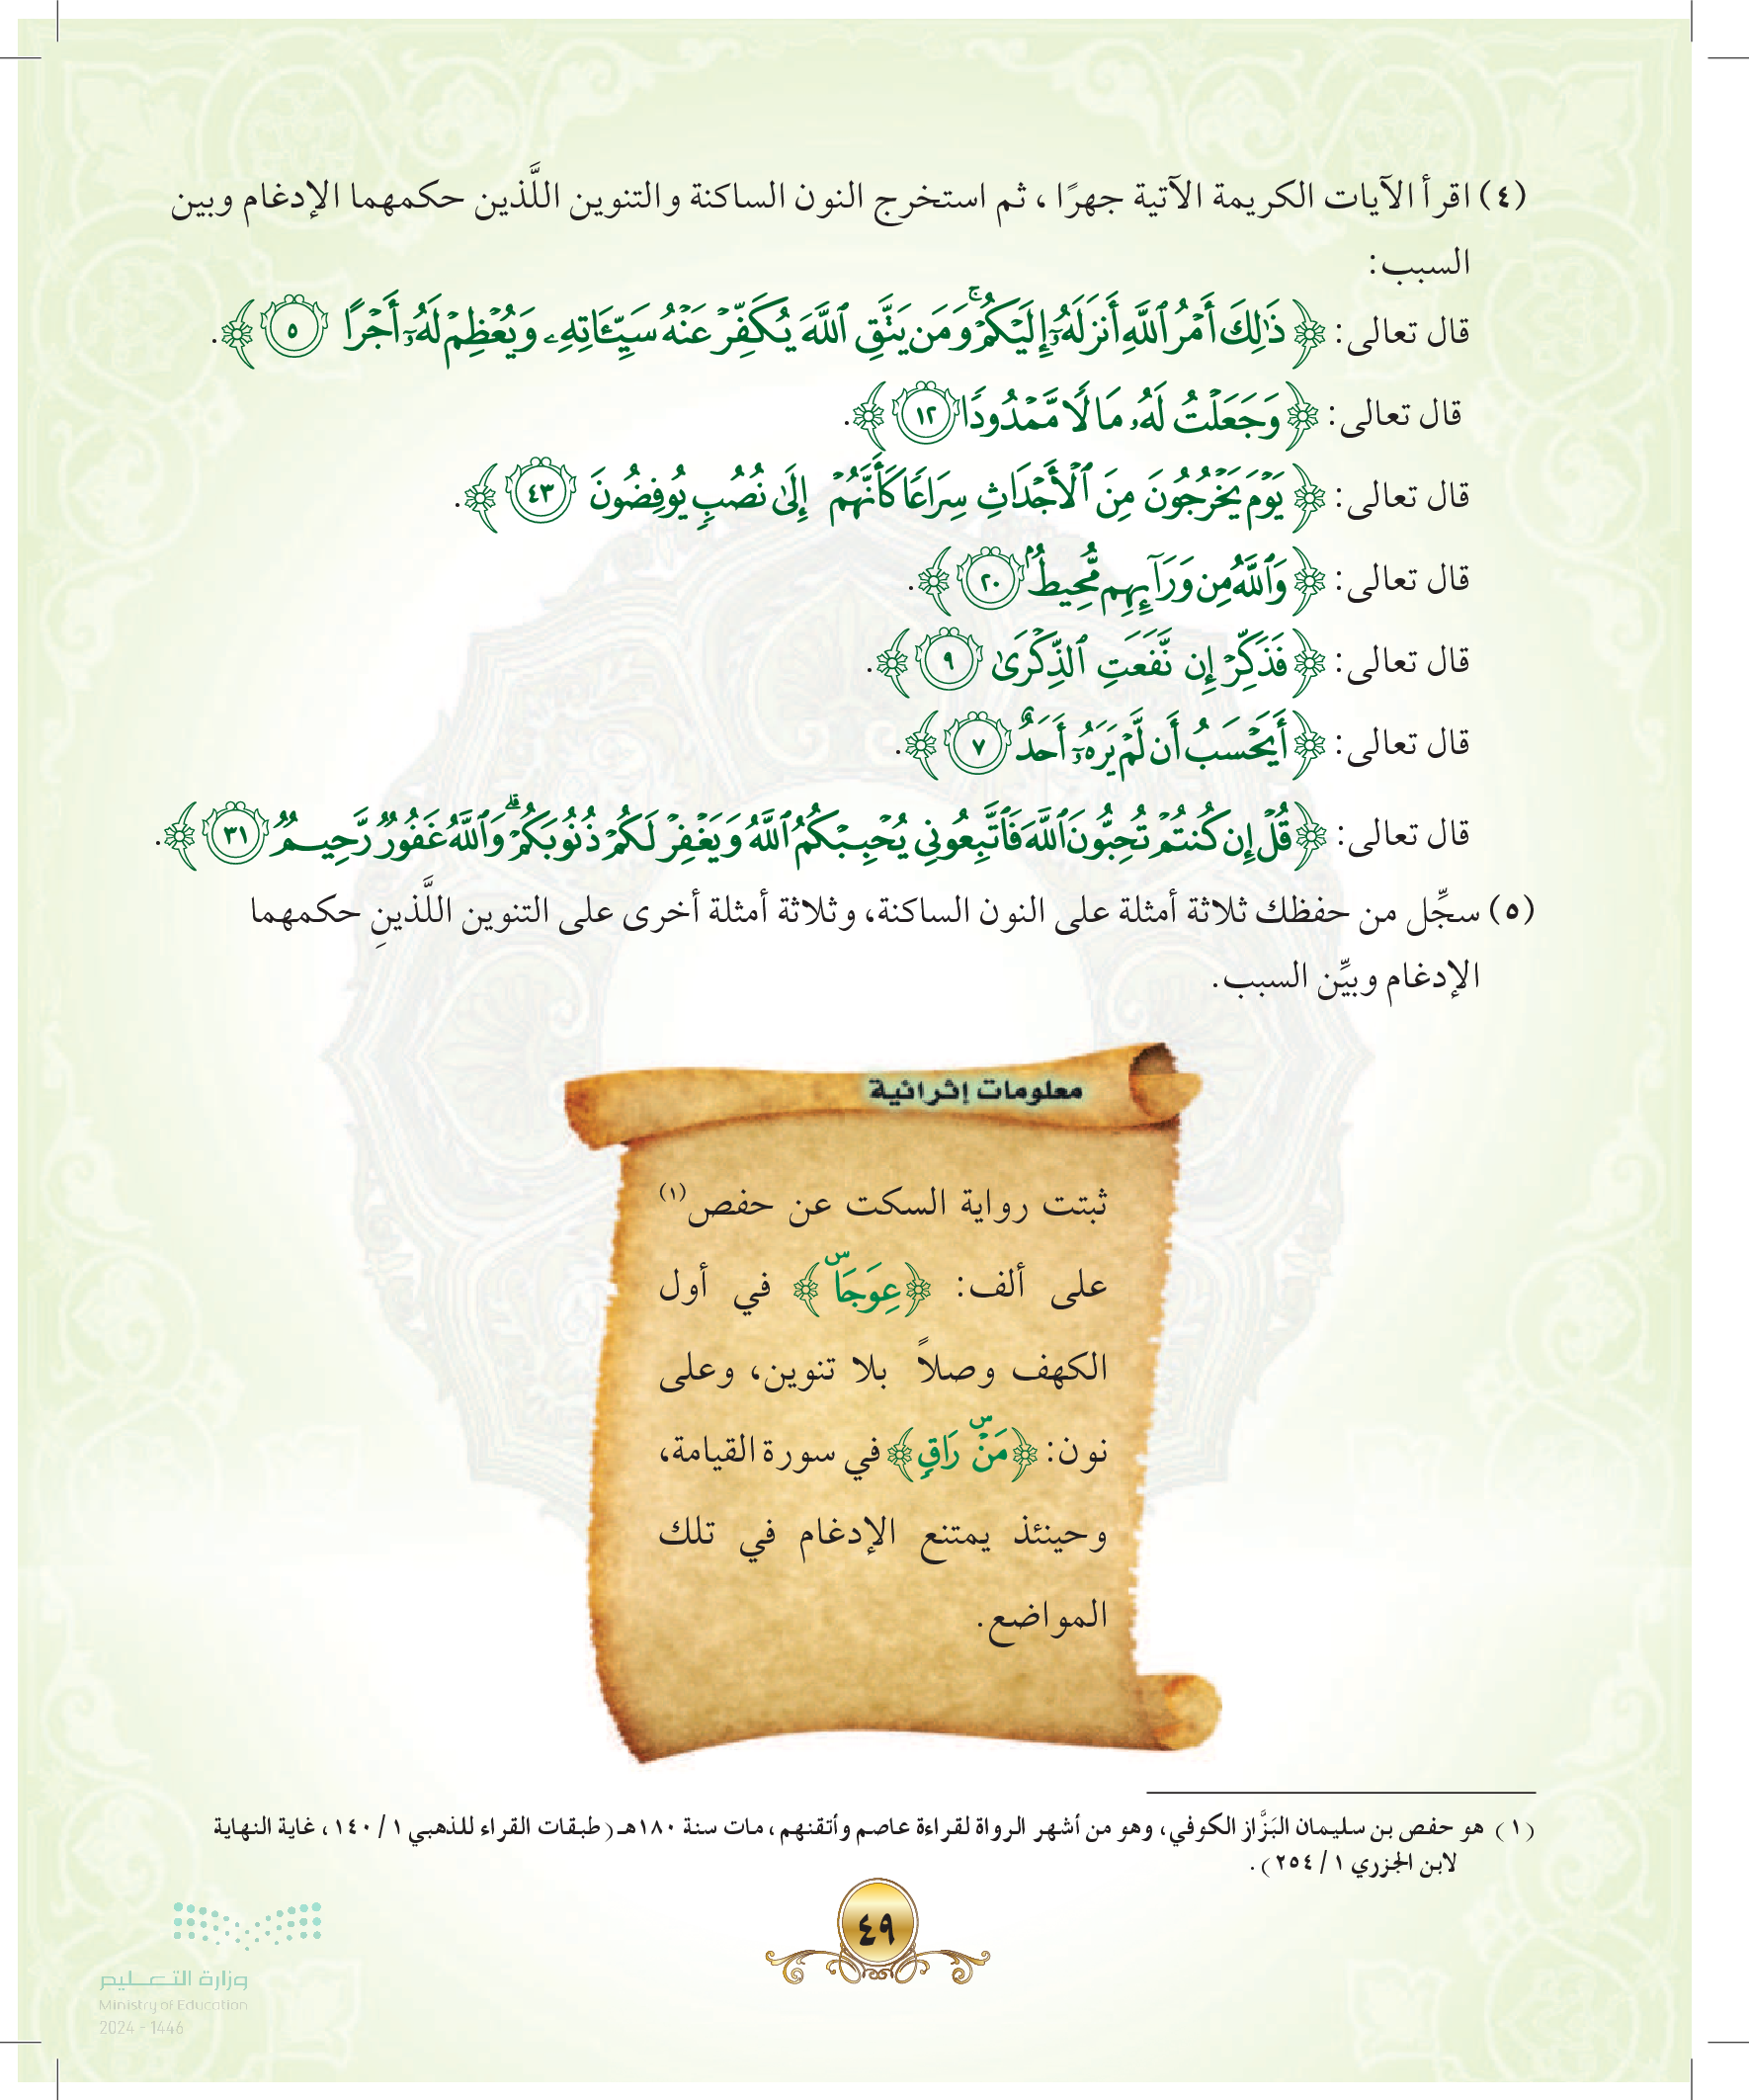 (٤) اقرأ الآيات الكريمة الآتية جهرًا ، ثم استخرج النون الساكنة والتنوين اللَّذين حكمهما الإدغام وبين
السبب:
قال تعالى: ﴿ ذَٰلِكَ أَمْرُ ٱللَّهِ أَنزَلَهُۥٓ إِلَيْكُمْۚ وَمَن يَتَّقِ ٱللَّهَ يُكَفِّرْ عَنْهُ سَيِّـَٔاتِهِۦ وَيُعْظِمْ لَهُۥٓ أَجْرًا ٥ ﴾.
قال تعالى: ﴿ وَجَعَلْتُ لَهُۥ مَالًا مَّمْدُودًا ١٢ ﴾.
قال تعالى: ﴿ يَوْمَ يَخْرُجُونَ مِنَ ٱلْأَجْدَاثِ سِرَاعًا كَأَنَّهُمْ إِلَىٰ نُصُبٍ يُوفِضُونَ ٤٣ ﴾.
قال تعالى: ﴿ وَٱللَّهُ مِن وَرَآئِهِم مُّحِيطٌۢ ٢٠ ﴾.
قال تعالى: ﴿ فَذَكِّرْ إِن نَّفَعَتِ ٱلذِّكْرَىٰ ٩ ﴾.
قال تعالى: ﴿ أَيَحْسَبُ أَن لَّمْ يَرَهُۥٓ أَحَدٌ ٧ ﴾.
قال تعالى: ﴿ قُلْ إِن كُنتُمْ تُحِبُّونَ ٱللَّهَ فَٱتَّبِعُونِي يُحْبِبْكُمُ ٱللَّهُ وَيَغْفِرْ لَكُمْ ذُنُوبَكُمْۗ وَٱللَّهُ غَفُورٌ رَّحِيمٌ ٣١ ﴾.
(٥) سجِّل من حفظك ثلاثة أمثلة على النون الساكنة، وثلاثة أمثلة أخرى على التنوين اللَّذينِ حكمهما
الإدغام وبيِّن السبب.
معلومات إثرائية
ثبتت رواية السكت عن حفص(١)
على ألف: ﴿عِوَجَاۜ﴾ في أول
الكهف وصلاً بلا تنوين، وعلى
نون: ﴿مَنْۜ رَاقٍ﴾ في سورة القيامة،
وحينئذ يمتنع الإدغام في تلك
المواضع.
(١) هو حفص بن سليمان البَزَّاز الكوفي، وهو من أشهر الرواة لقراءة عاصم وأتقنهم، مات سنة ١٨٠هـ (طبقات القراء للذهبي ١/ ١٤٠، غاية النهاية
لابن الجزري ١/ ٢٥٤).
٤٩
وزارة التعـــليم
Ministry of Education
2024 - 1446